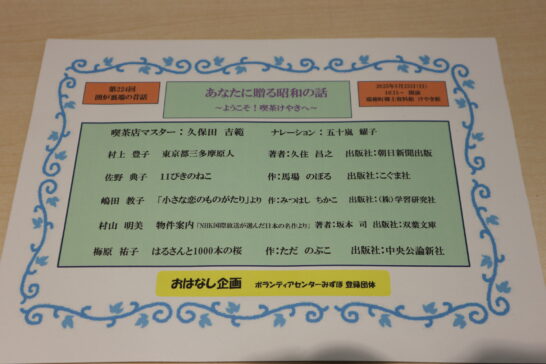 第224回
囲炉裏端の昔話
あなたに贈る昭和の話
～ようこそ！喫茶けやきへ～
2025年4月25日(日)
瑞穂町郷土資料館 けやき館
喫茶店マスター：久保田 吉範 ナレーション：五十嵐 耀子
村上 豊子 東京都三多摩原人 著者：久住 昌之 出版社：朝日新聞出版
佐野 典子 11ぴきのねこ 作：馬場 のぼる 出版社：こぐま社
嶋田 教子 「小さな恋のものがたり」より 作：みつはし ちかこ 出版社：(株)学習研究社
村山 明美 物件案内「NHK国際放送が選んだ日本の名作より」 著者：坂本 司 出版社：双葉文庫
梅原 祐子 はるさんと1000本の桜 作：ただ のぶこ 出版社：中央公論新社
おはなし企画 ボランティアセンターみずほ 登録団体